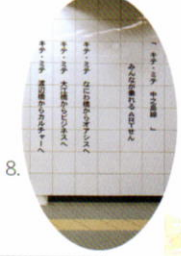 「 キテ・ミテ 中之島線 」
みんなが乗れるARTせん
キテ・ミテ なにわ橋からオアシスへ
キテ・ミテ 大江橋からビジネスへ
キテ・ミテ 渡辺橋からカルチャーへ
8.